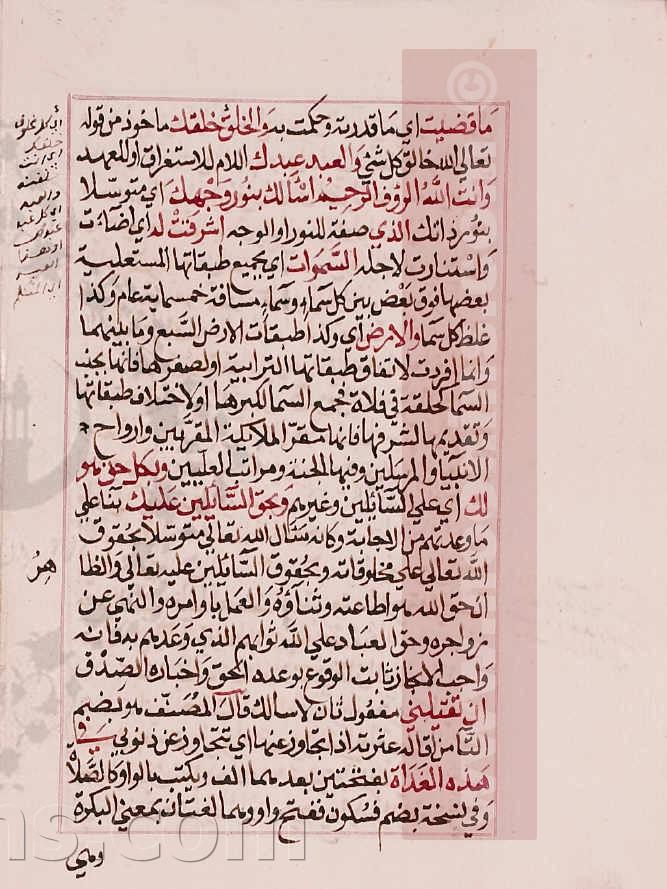 ما قضيت اي ما قدرته وحكمت به والخلق خلقك ماخوذ من قوله
تعالي الله خالق كل شي والعبد عبدك اللام للاستغراق او للعهد
وانت الله الرؤف الرحيم اسالك بنور وجهك اي متوسلا
بنور ذاتك الذي صفة للنور او الوجه اشرقت له اي اضاءت
واستنارت لاجله السموات اي بجميع طبقاتها المستعلية
بعضها فوق بعض بين كل سماء وسماء مسافة خمسماية عام وكذا
غلظ كل سما والارض اي وكذا طبقات الارض السبع وما بينهما
وانما افردت لاتفاق طبقاتها الترابية او لصغرها فانها بجنب
السما كحلقة في فلاة فجمع السما لكبرها او لاختلاف طبقاتها
وتقديمها لشرفها فانها مقر الملايكة المقربين وارواح
الانبيا والمرسلين وفيها الجنة ومراتب العليين وبكل حق هو
لك اي علي السائلين وغيرهم وبحق السائلين عليك بنا علي
ما وعدتهم من الاجابة وكانه سال الله تعالي متوسلا بحقوق
الله تعالي علي مخلوقاته وبحقوق السائلين عليه تعالي والظا
ان حق الله هو اطاعته وثناؤه والعمل باوامره والنهي عن
زواجره وحق العباد علي الله ثوابهم الذي وعدهم به فانه
واجب الانجاز ثابت الوقوع بوعده الحق واخباره الصدق
ان تقيلني مفعول ثان لاسالك قال المصنف هو بضم
التا من اقاله عثرته اذا تجاوز عنها اي تتجاوز عن ذنوبي في
هذه الغداة بفتحتين بعدهما الف ويكتب بالواو كالصلاة
وفي نسخة بضم فسكون ففتح واو وهما لغتان بمعني البكرة
وهي
اي كل مخلوق
خلقك
اي انت
ns.com